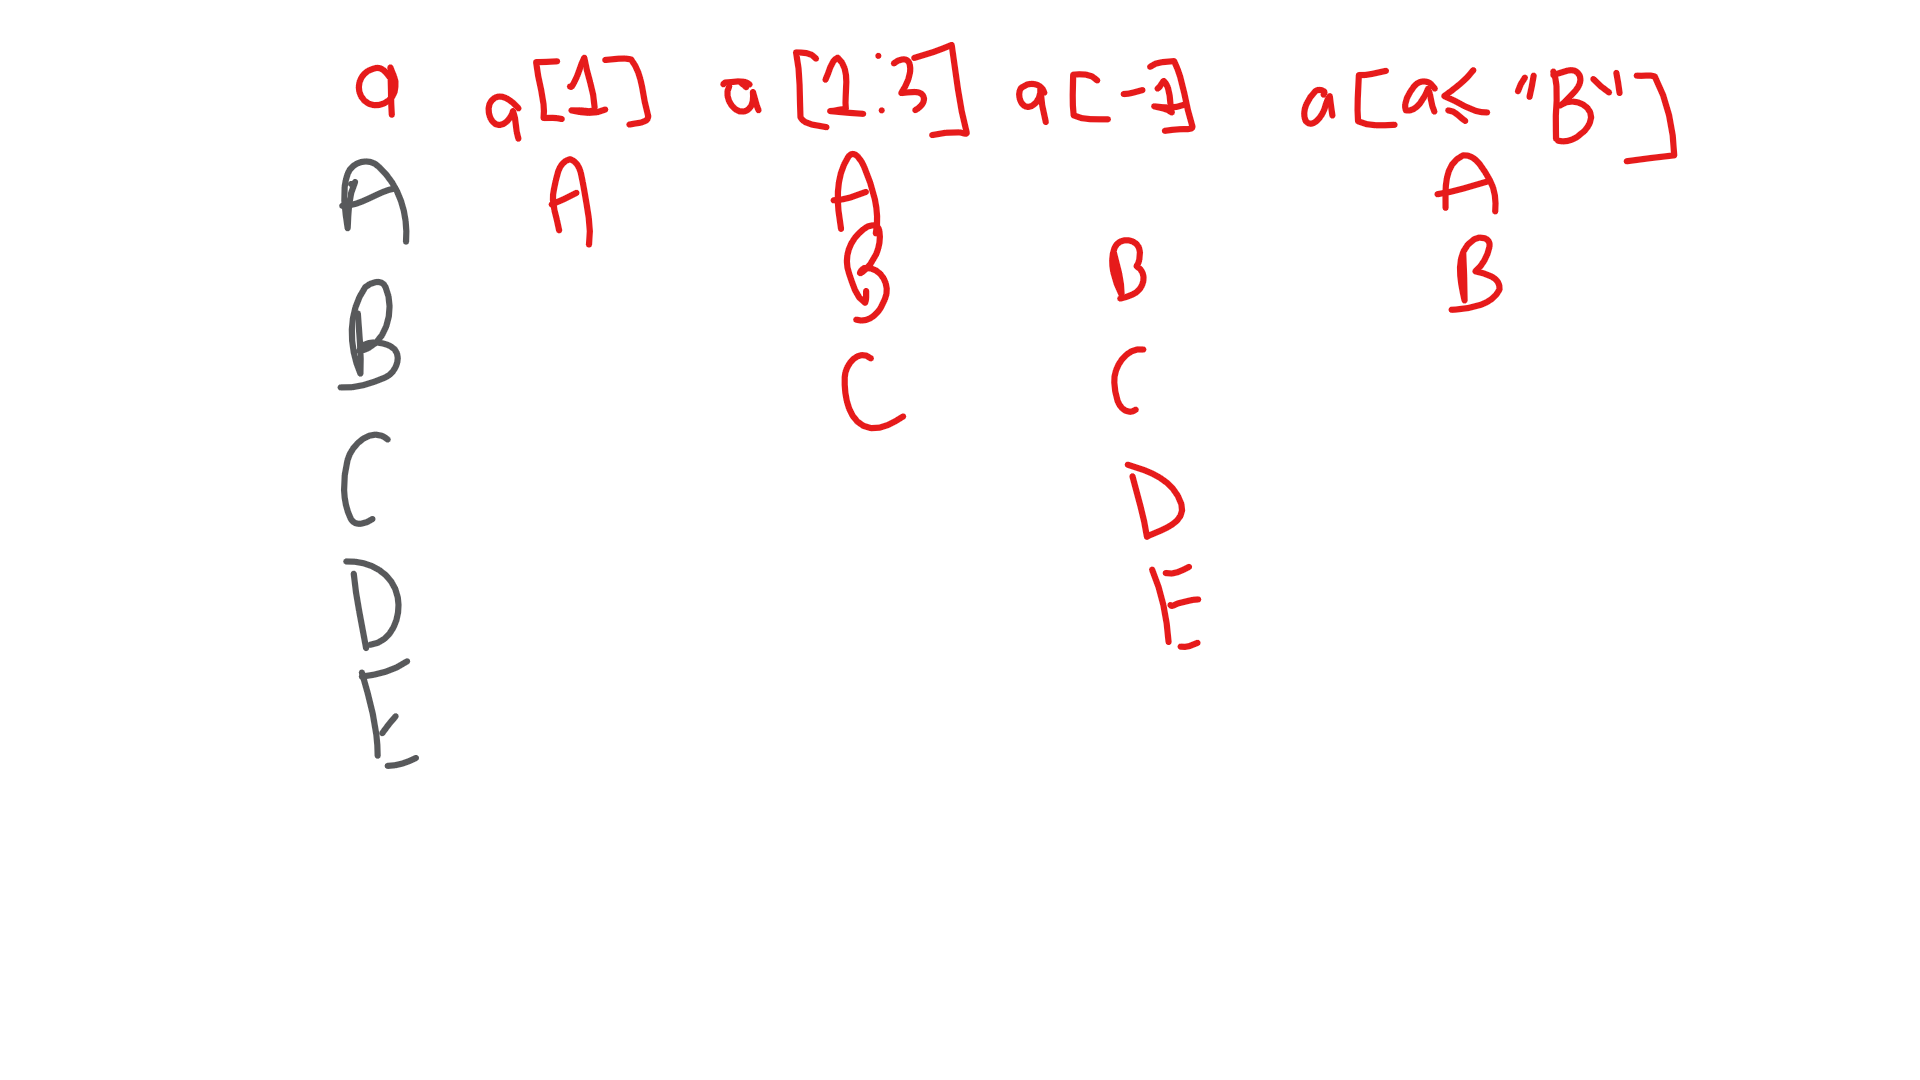 a a[1] a[1:3] a[-1] a[a≤"B"]
A A A A
B B B B
C C C
D D
E E